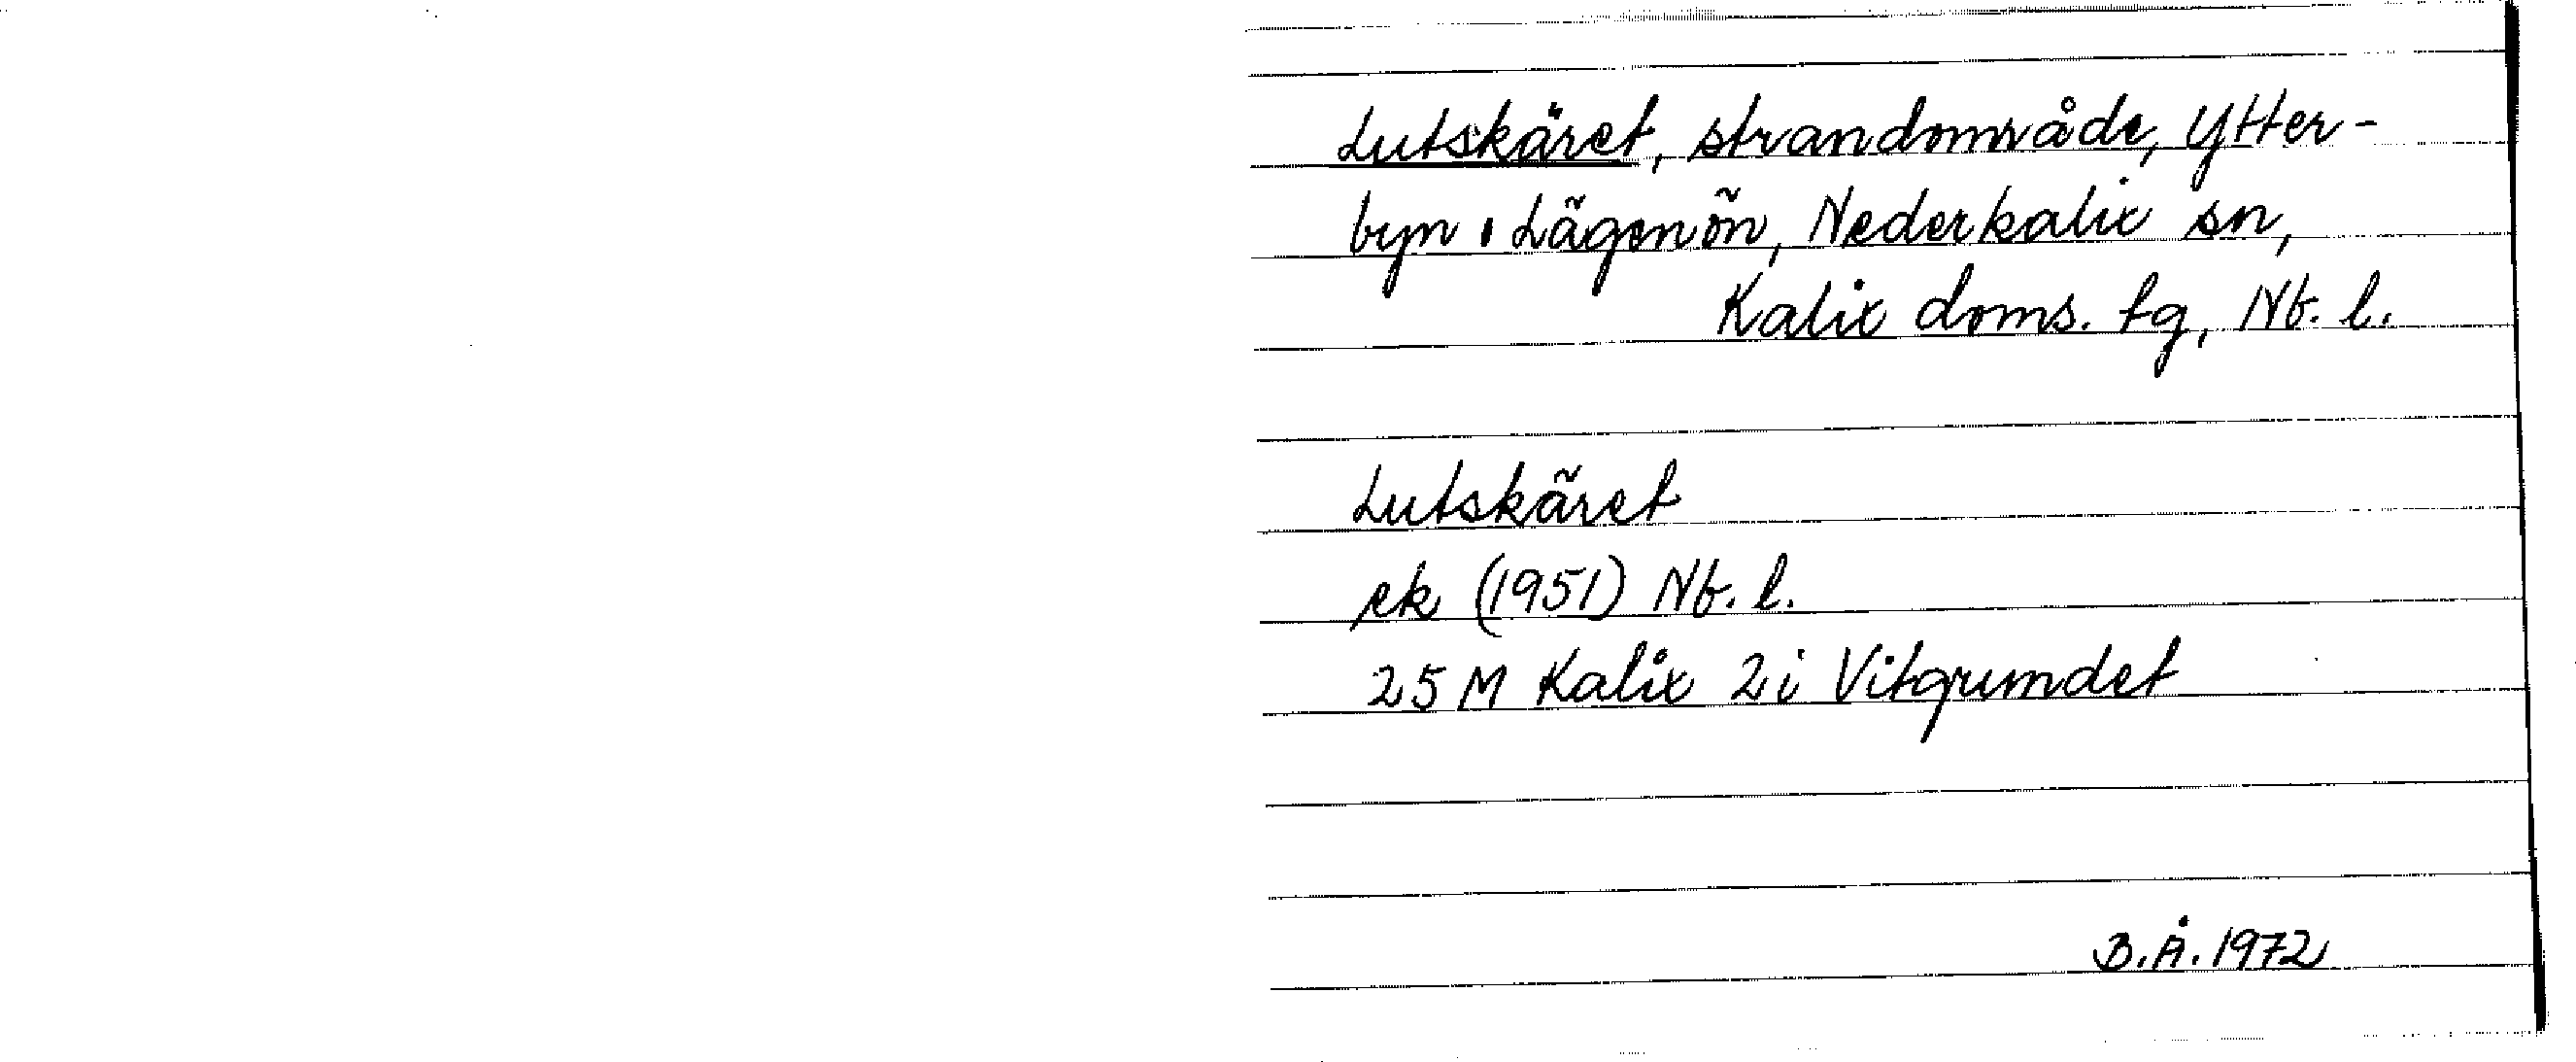 Lutskäret, strandområde, Ytter-
byn, Lägenön, Nederkalix sn,
Kalix doms. tg, Nb. l.
Lutskäret
ek (1951) Nb. l.
25 M Kalix 2i Vitgrundet
B.Å. 1972